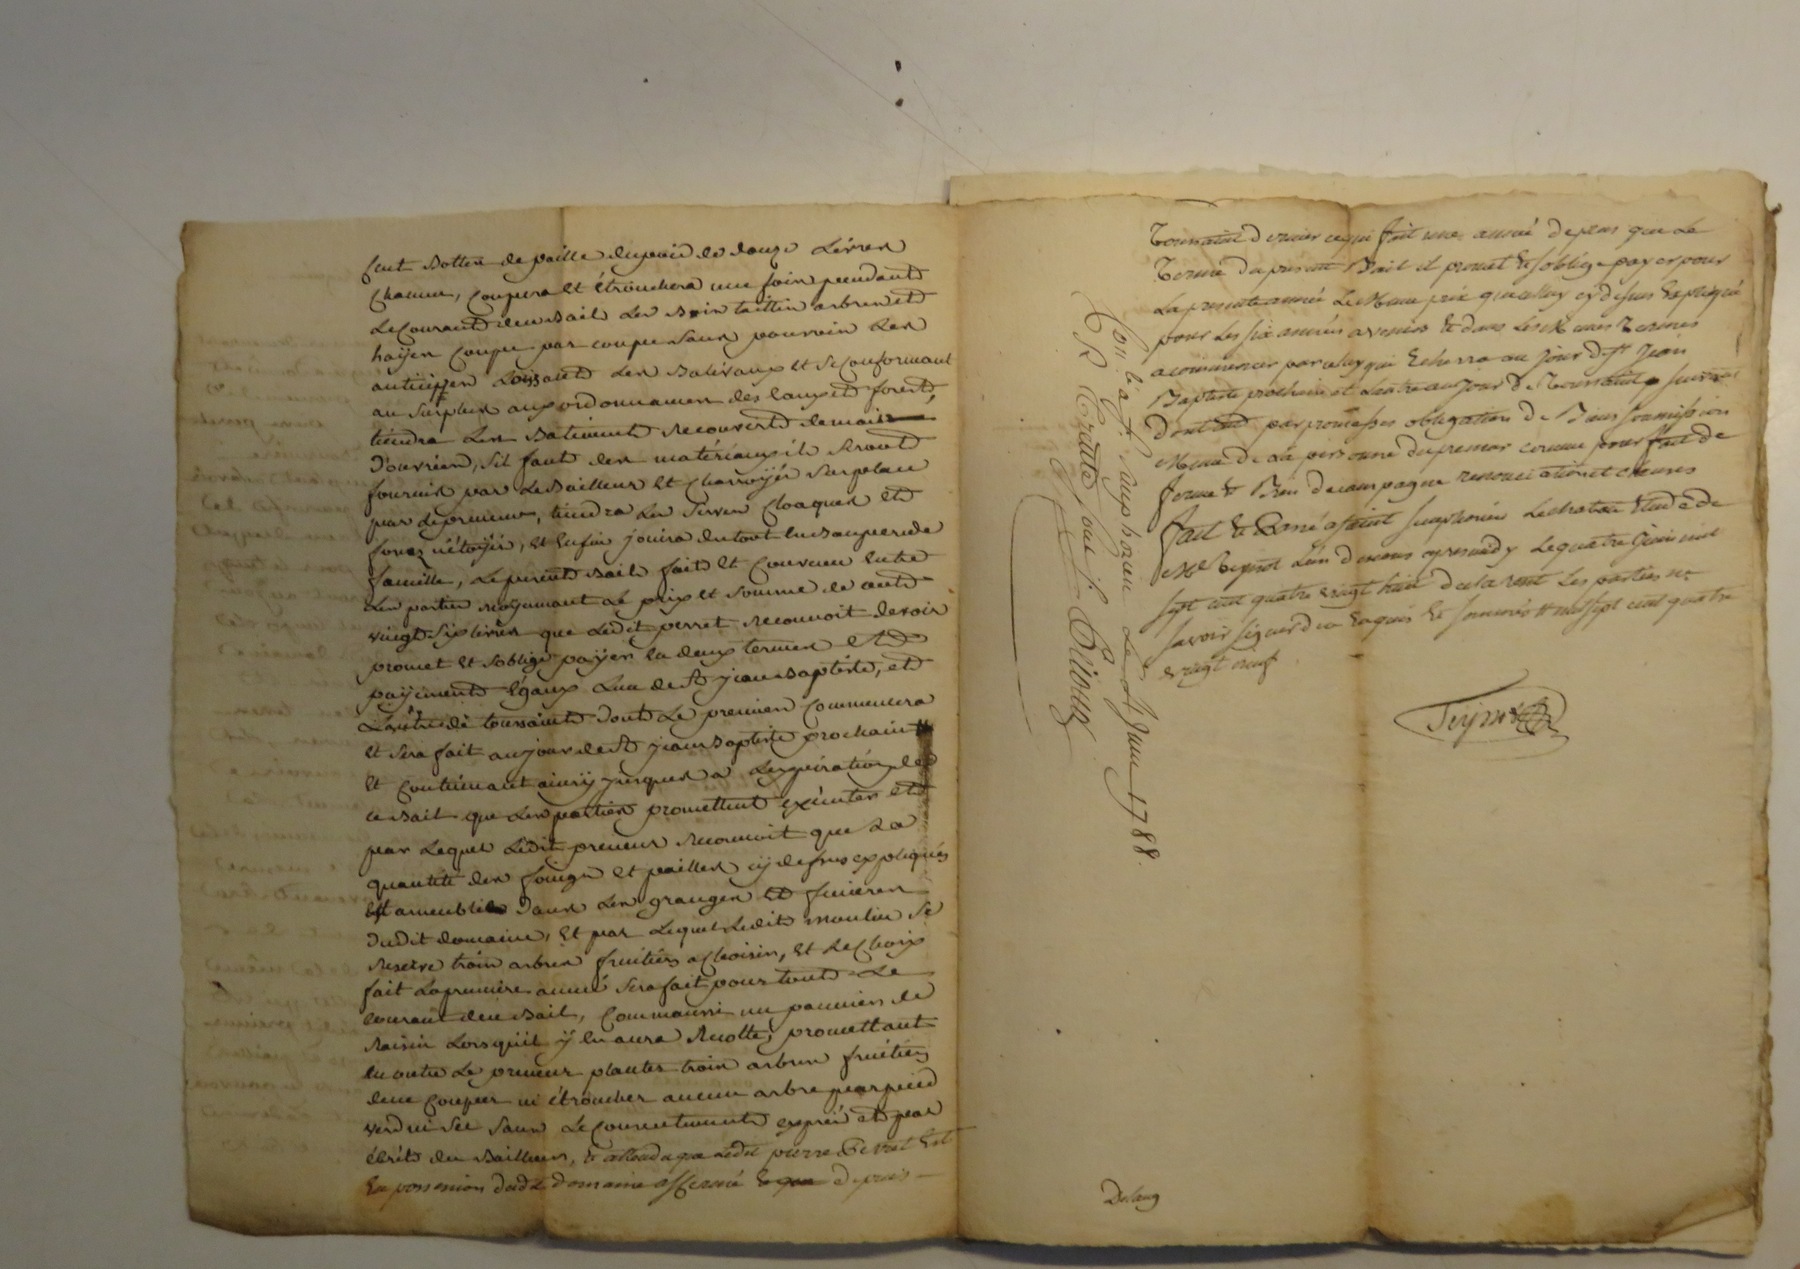 Cent Bottes de paille du poid de douze Livres
Chacune, Coupera et étrouchera une foin pendant
Le Courant du Bail Les Bois taillis arbres et
hayes Coupe par coupe sans pouvoir Les
anticiper Laissant Les Balivaux et se Conformant
au surplus aux ordonnances des Eaux et forets,
tiendra Les Batiments Recouverts de main
D'ouvrier, s'il faut des matériaux ils seront
fournis par Le Bailleur et Charroyés sur place
par Le preneur, tiendra Les Serves Cloaques et
fossez nétoyés, et enfin jouira du tout en Bon pere de
famille, Le present Bail fait et Convenu entre
Les parties moyennant Le prix et Somme de cent
vingt six livres que Ledit perret Reconnoit devoir
promet et s'oblige payer en deux termes et
payements égaux L'un de St jean Baptiste, et
L'autre de toussaint dont Le premier Commencera
et sera fait au jour de St jean Baptiste prochain
et Continuant ainsy jusques a L'expiration de
ce Bail que Les parties promettent exécuter et
par Lequel Ledit preneur Reconnoit que La
quantité des foings et pailles cy dessus expliqués
est ameublie dans Les granges et fenieres
dudit domaine, et par Lequel Ledit moulin se
Reserve trois arbres fruitiers a Choisir, et Le Choix
fait La premiere année sera fait pour tout Le
courant du Bail, Comm'aussi un pannier de
Raisin Lors qu'il y en aura Recolte, promettant
en outre Le preneur planter trois arbres fruitiers
de ne Couper ni étroucher aucun arbre par pied
verd ni sec sans Le Consentement exprès et par
écrit du Bailleur, et attendu que Ledit pierre Perret Est
En possession dudit domaine affermé depuis
Toussaint dernier ce qui fait une année de plus que Le
Terme du present Bail il promet et s'oblige payer pour
La presente année Le Meme prix que celuy cy dessus Expliqué
pour Les six années a venir et dans Les Memes Termes
a commencer par celuy qui Echerra au jour de St Jean
Baptiste prochain et L'autre au jour de Toussaint suivant
Dont acte par promesses obligation de Biens soumission
Meme de La personne du preneur comme pour fait de
ferme et Bien de campagne renonciations et clauses
fait et Passé a saint simphorien Le chateau Etude de
Me Teyssot L'un de nous Le quatre Juin mil
sept cent quatre vingt huit declarent Les parties ne
savoir signer de ce Enquis Et sommés # mil sept cent quatre
vingt neuf
Conlé a St Saymphorien Le 4 Juin 1788.
Delang